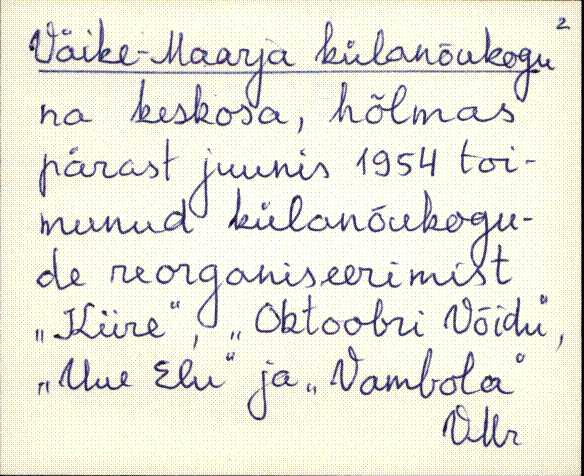 2
Väike-Maarja külanõukogu
na keskosa, hõlmas
pärast juunis 1954 toi-
munud külanõukogu-
de reorganiseerimist
„Kiire", „Oktoobri Võidu",
„Uue Elu" ja „Vambola"